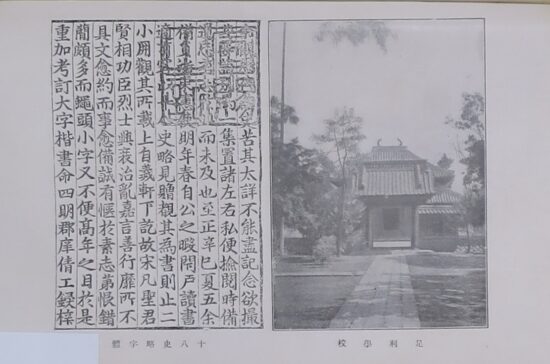 苦其太詳不能盡記念欲撮
集置諸左右私便撿閱時備
而未及也至正辛巳夏五余
明年春自公之暇閉戶讀書
史略見贈觀其為書則止二
小冊觀其所載上自羲軒下訖故宋凡聖君
賢相功臣烈士興衰治亂嘉言善行靡不
具文愈約而事愈備誠有愜於素志第恨錯
簡頗多而蠅頭小字又不便高年之目於是
重加考訂大字楷書命四明郡庠倩工鋟梓
十八史略字體
足利學校